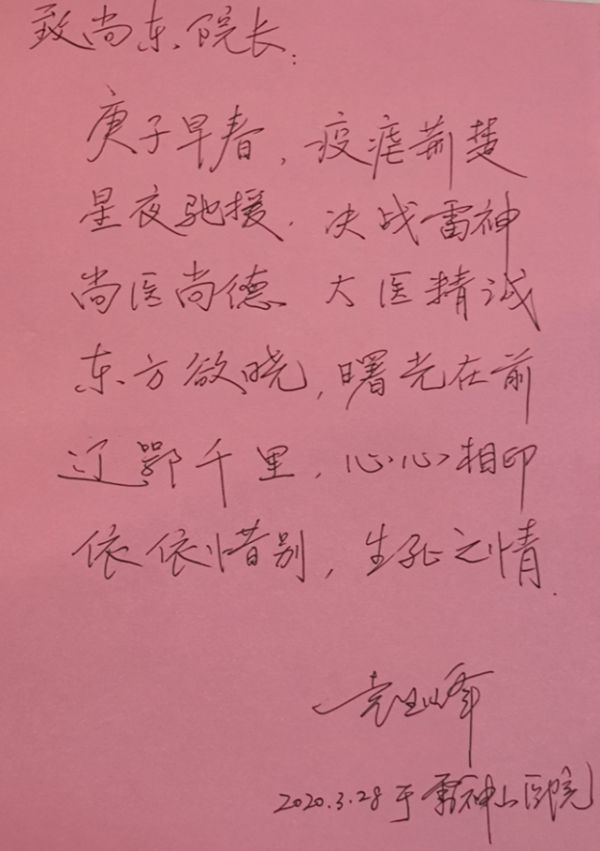 致尚东院长:
庚子早春,疫虐荆楚
星夜驰援.决战雷神
尚医尚德 大医精诚
东方欲晓,曙光在前
辽鄂千里,心心相印
依依惜别,生死之情.
袁玉峰
2020.3.28于雷神山医院